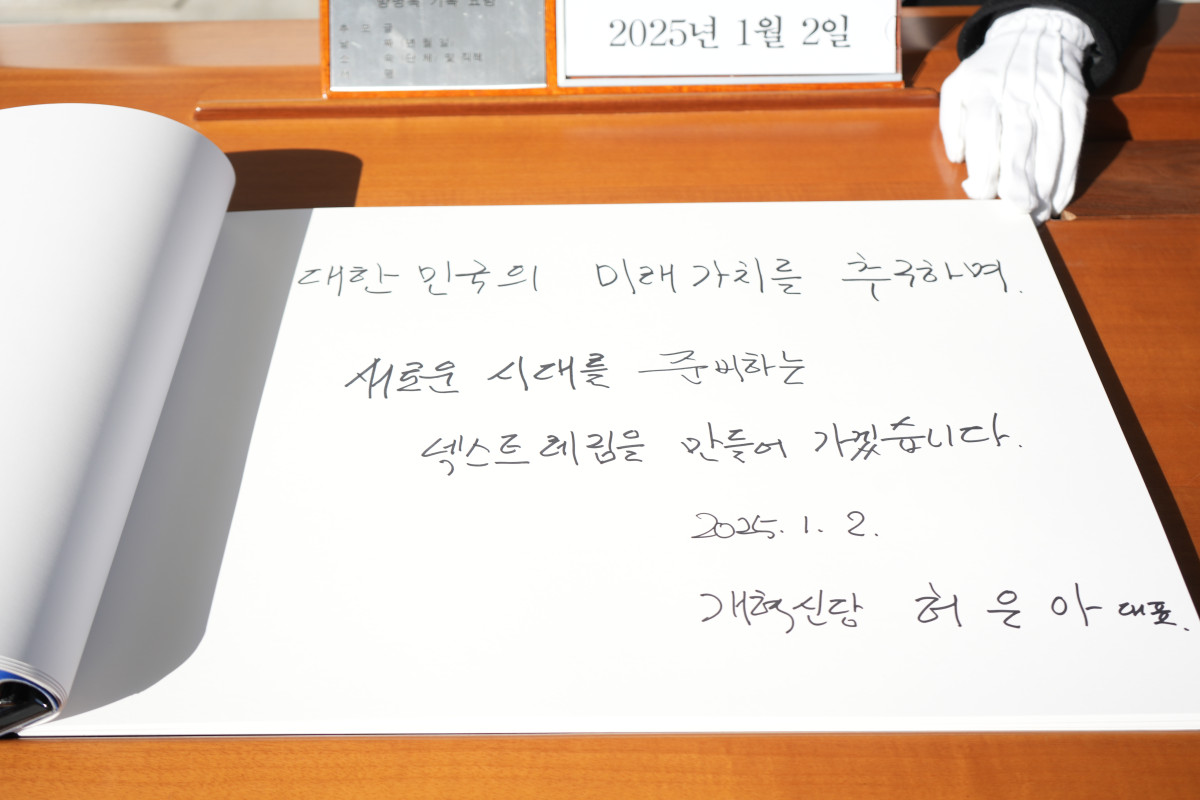 방명록 기록 요령
추 모 글
날 짜 년 월 일
소 속 단 체 및 직 책
성 명
2025년 1월 2일
대한민국의 미래가치를 추구하며.
새로운 시대를 준비하는
넥스트레림을 만들어 가겠습니다.
2025. 1. 2.
개혁신당 허은아 대표.